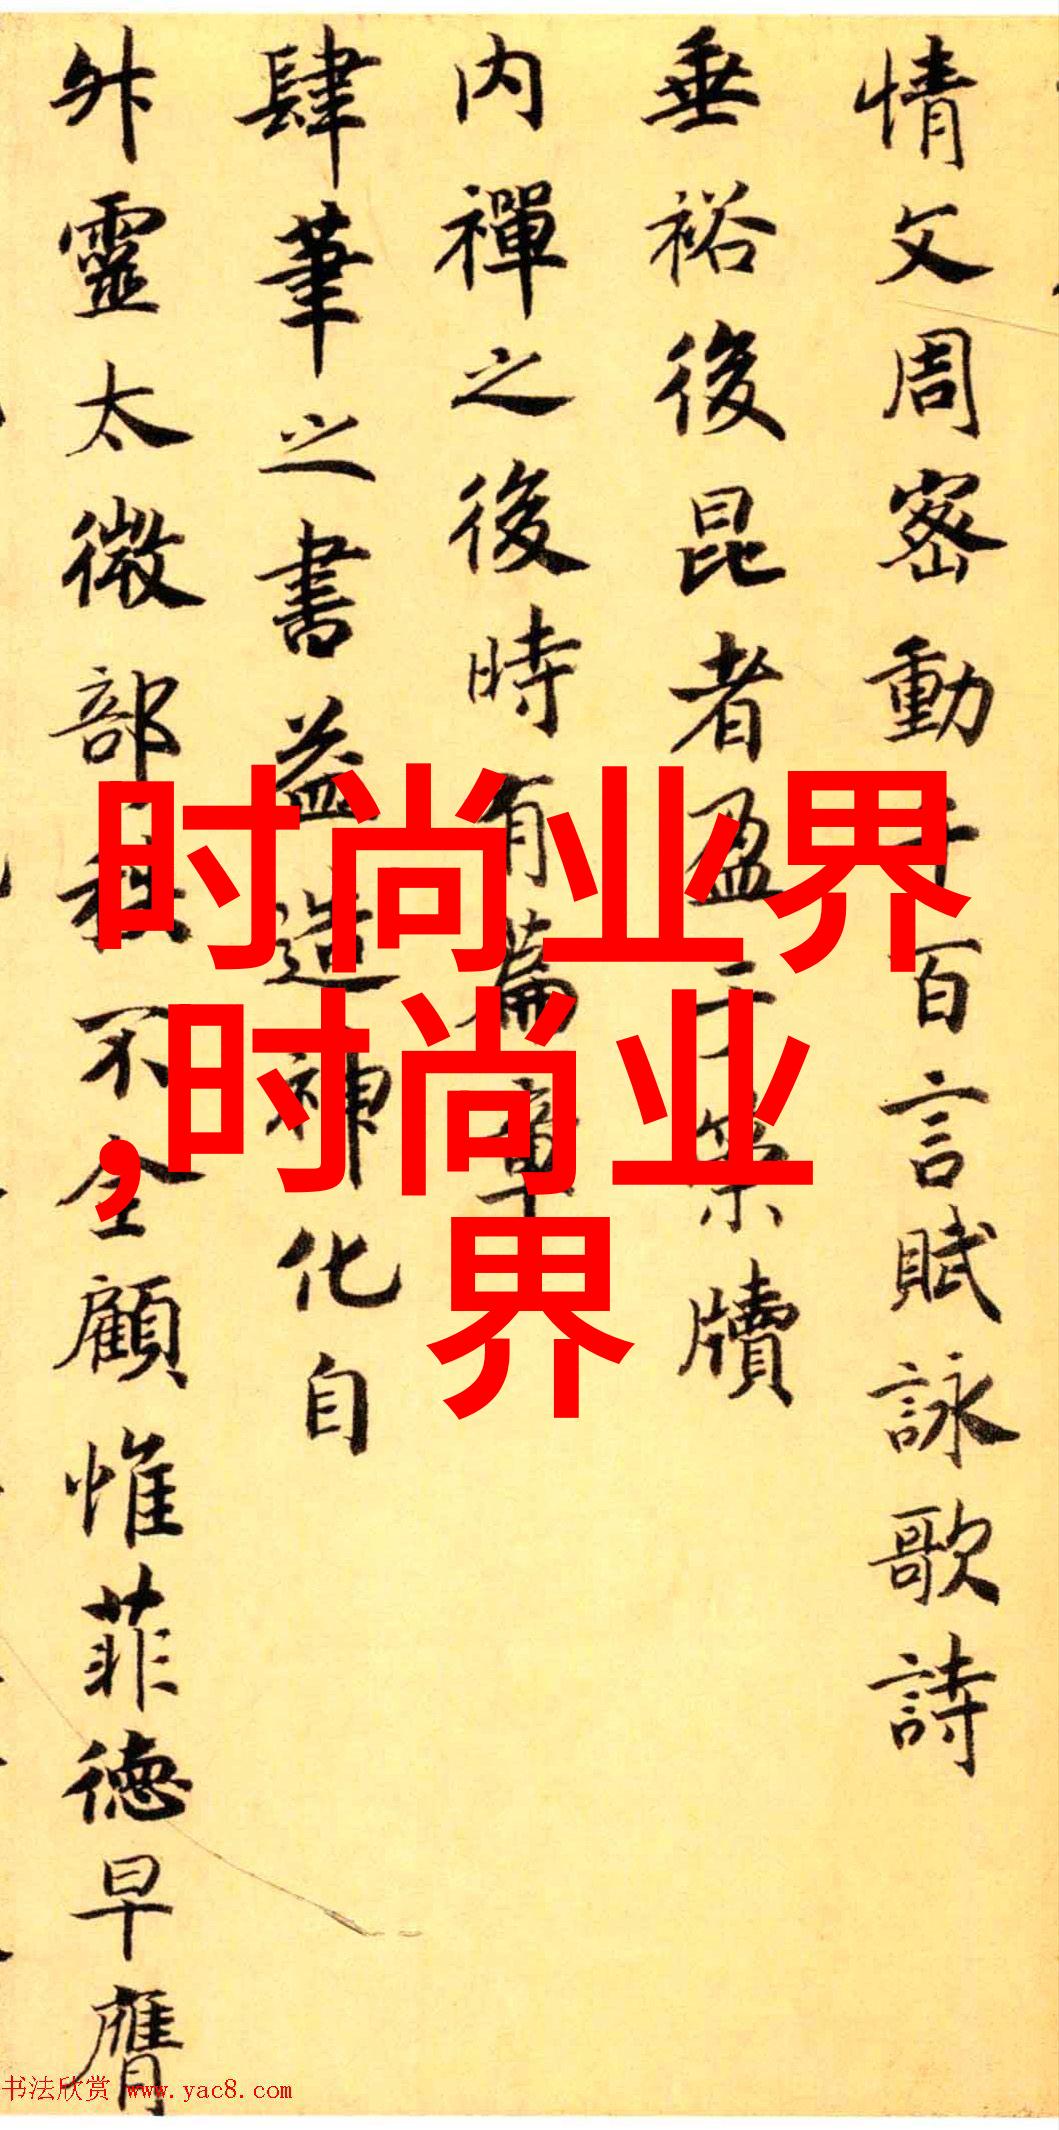 情文周密動千百言賦詠歌詩
垂裕後昆者盈于篆牘
内禪之後時有篇章
肆筆之書益造神化自
外靈太微部秩不全顧惟菲德早膺
时尚业界
,时尚业
界
书法欣赏 www.yac8.com